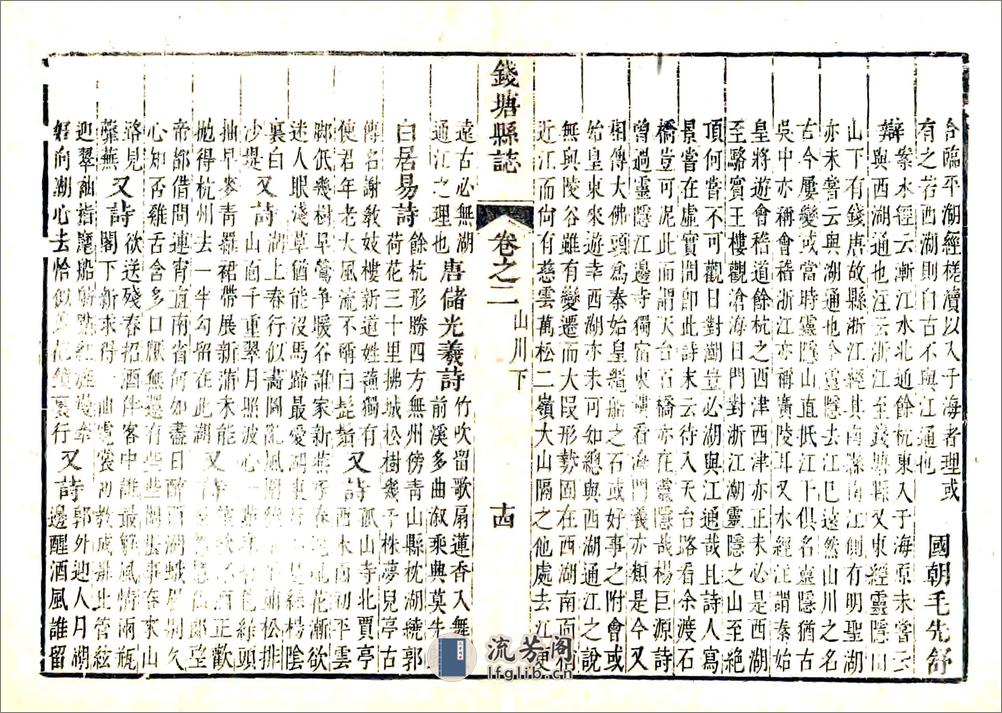 合臨平湖經槎瀆以入于海者理或
有之若西湖則自古不與江通也
國朝毛先舒
辯
案水經云漸江水北通餘杭東入于海原未嘗云
與西湖通也注云浙江至錢塘縣又東經靈隱
山下有錢唐故縣浙江經其南縣南江側有明聖湖
亦未嘗云與湖通也今靈隱去江巳遠然山川之名
古今屢變或當時靈隱山直抵江干俱名靈隱猶古
吳中亦稱會稽浙江亦稱廣陵耳又水經注謂秦始
皇將遊會稽道餘杭之西津西津亦正未必是湖
至駱賓王樓觀滄海日門對浙江潮靈隱之山至絕
頂何嘗不可觀日對湖豈必湖與江通哉且詩人寫
景嘗在虛實間卽此詩末云待入天台路看余渡石
橋豈可泥此而謂天台石橋亦在靈隱哉楊巨源詩
曾過靈隱江邊寺獨宿東樓看海門義亦類是今又
相傳大佛頭爲秦始皇纜船之石或好事之附會或
始皇東來遊幸西湖亦未可知總與西湖通江之說
無與陵谷雖有變遷而大叚形勢固在西湖南面
近江而向有慈雲萬松二嶺大山隔之他處去江更
錢塘縣誌
卷之二
山川下
十四
遠古必無湖
通江之理也
唐儲光羲詩
竹吹留歌扇蓮香入舞
前溪多曲溆乘興莫先
白居易詩
餘杭形勝四方無州傍靑山縣枕湖繞郭
荷花三十里拂城松樹幾千株夢兒亭古
傳名謝敎妓樓新道姓蘇獨有
使君年老大風流不稱白髭鬚
又詩
孤山寺北賈亭
西水面初平雲
脚低幾樹早鶯爭暖谷誰家新燕啄春泥亂花漸欲
迷人眼淺草猶能沒馬蹄最愛湖東行不足綠楊陰
裏白
沙堤
又詩
湖上春行似畫圖亂峯圍繞水平鋪松排
山面千重翠月照波心一顆珠碧毯線頭
抽早麥靑羅裙帶展新蒲未能
抛得杭州去一半勾留在此湖
又詩
笙歌杯酒正歡
娛忽憶仙郎望
帝都借問連宵直南省何如盡日醉西湖蛾眉別久
心知否雞舌含多口厭無還有些些惆悵事春來山
路見
蘼蕪
又詩
欲送殘春招酒伴客中誰最解風情兩瓶
箬下新開得一曲霓裳初教成排比管絃
迎翠袖指麾船舫點紅旌慢牽
好向湖心去恰似菱花鏡裏行
又詩
郭外迎人月湖
邊醒酒風誰留
流芳閣
lfglib.cn